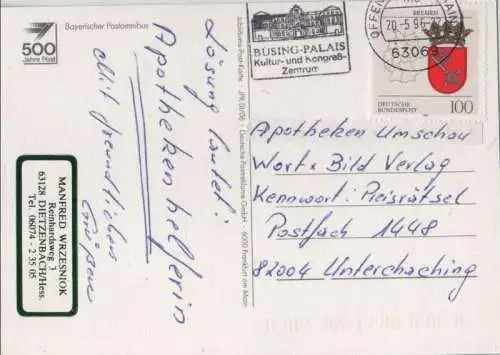 500
Jahre Post
Bayerischer Postomnibus
Lösung lautet:
Apothekenhelferin
Mit freundlichen
Grüßen
MANFRED WRZESNIOK
Reinhardsweg 3
63128 DIETZENBACH/Hess.
Tel. 06074 - 2 35 05
Jubiläums-Post-Karte
Deutsche Postreklame GmbH
6000 Frankfurt am Main
BÜSING-PALAIS
Kultur- und Kongreß-
Zentrum
OFFENBACH
63069
BREMEN
DEUTSCHE
BUNDESPOST
100
Apotheken Umschau
Wort + Bild Verlag
Kennwort: Preisrätsel
Postfach 1448
82004 Unterhaching